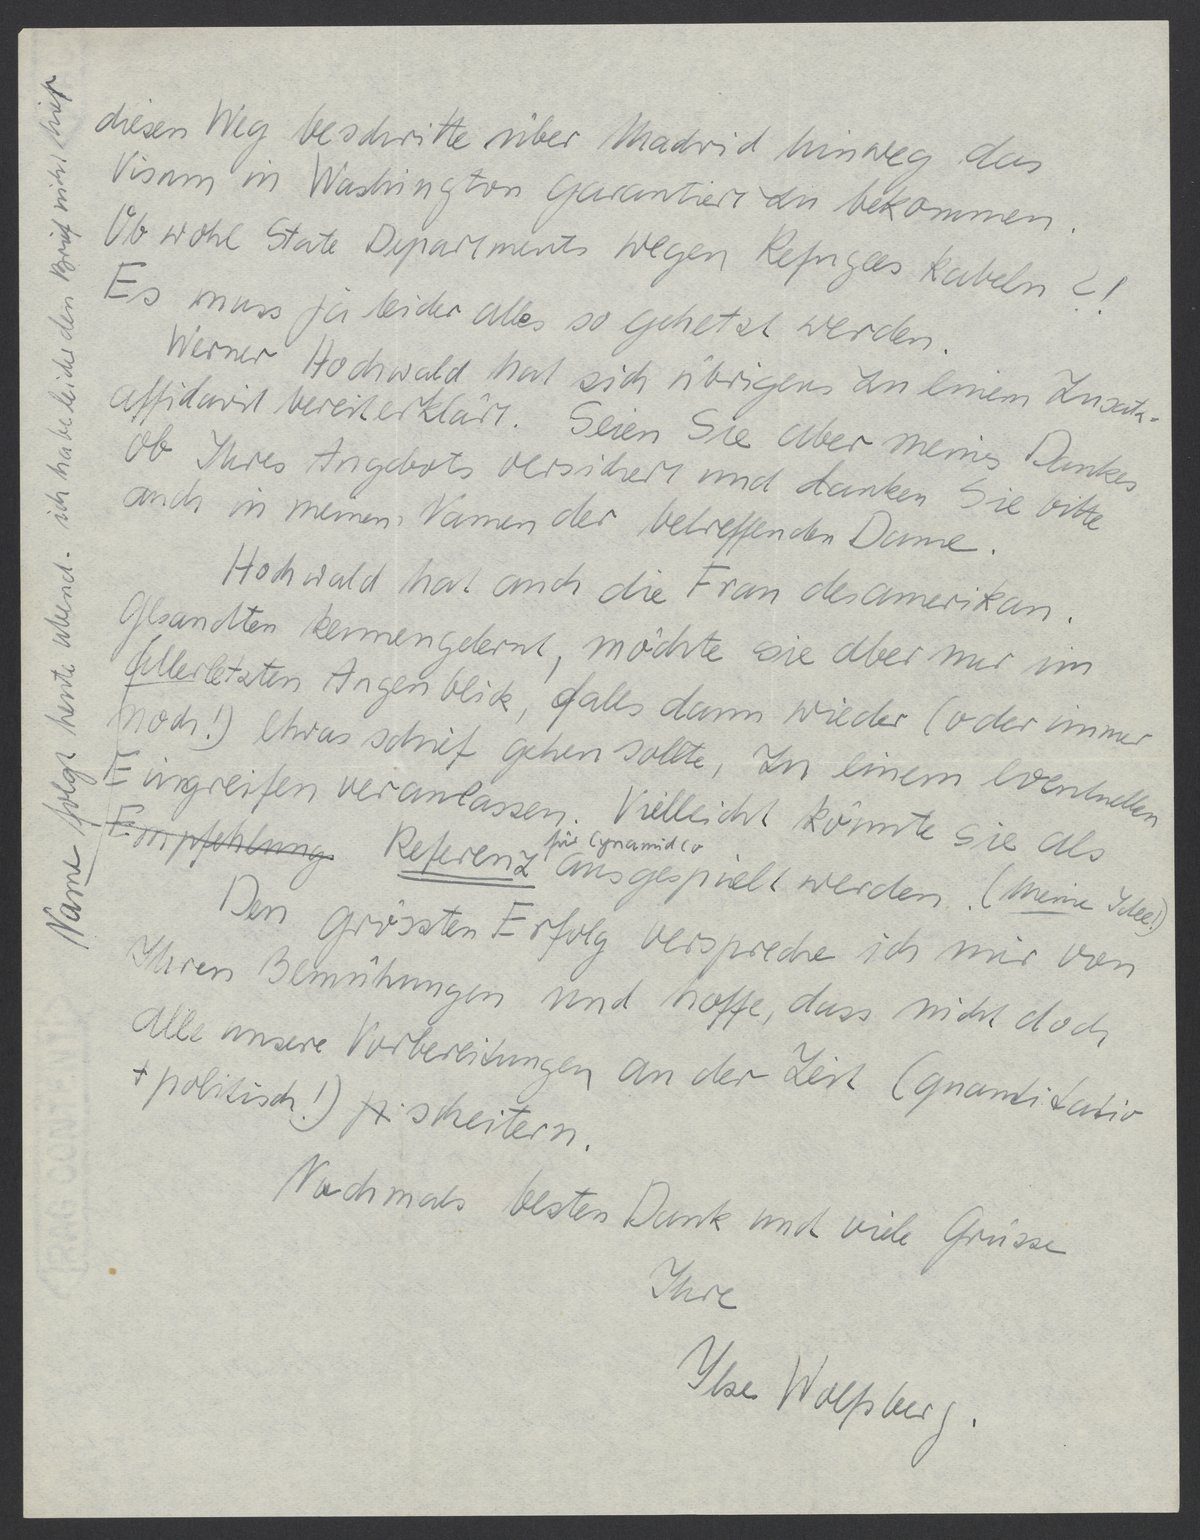 diesen Weg beschritte über Madrid hinweg das
Visum in Washington garantiert zu bekommen.
Ob wohl State Departments wegen Refugees kabeln ?!
Es muss ja leider alles so gehetzt werden.
Werner Hochwald hat sich übrigens zu einem Zusatz-
affidavit bereiterklärt. Seien Sie aber meines Dankes
ob Ihres Angebots versichert und danken Sie bitte
auch in meinem Namen der betreffenden Dame.
Hochwald hat auch die Frau des amerikan.
Gesandten kennengelernt, möchte sie aber nur im
allerletzten Augenblick, falls dann wieder (oder immer
noch!) etwas schief gehen sollte, zu einem eventuellen
Eingreifen veranlassen. Vielleicht könnte sie als
Empfehlung Referenz für Cynamid Co ausgespielt werden. (meine Idee!)
Den grössten Erfolg verspreche ich mir von
Ihren Bemühungen und hoffe, dass nicht doch
alle unsere Vorbereitungen an der Zeit (quantitativ
+ politisch!) scheitern.
Nochmals besten Dank und viele Grüsse
Ihre
Ilse Wolfsberg.
Name folgt heute abend - ich habe leider den Brief nicht hier